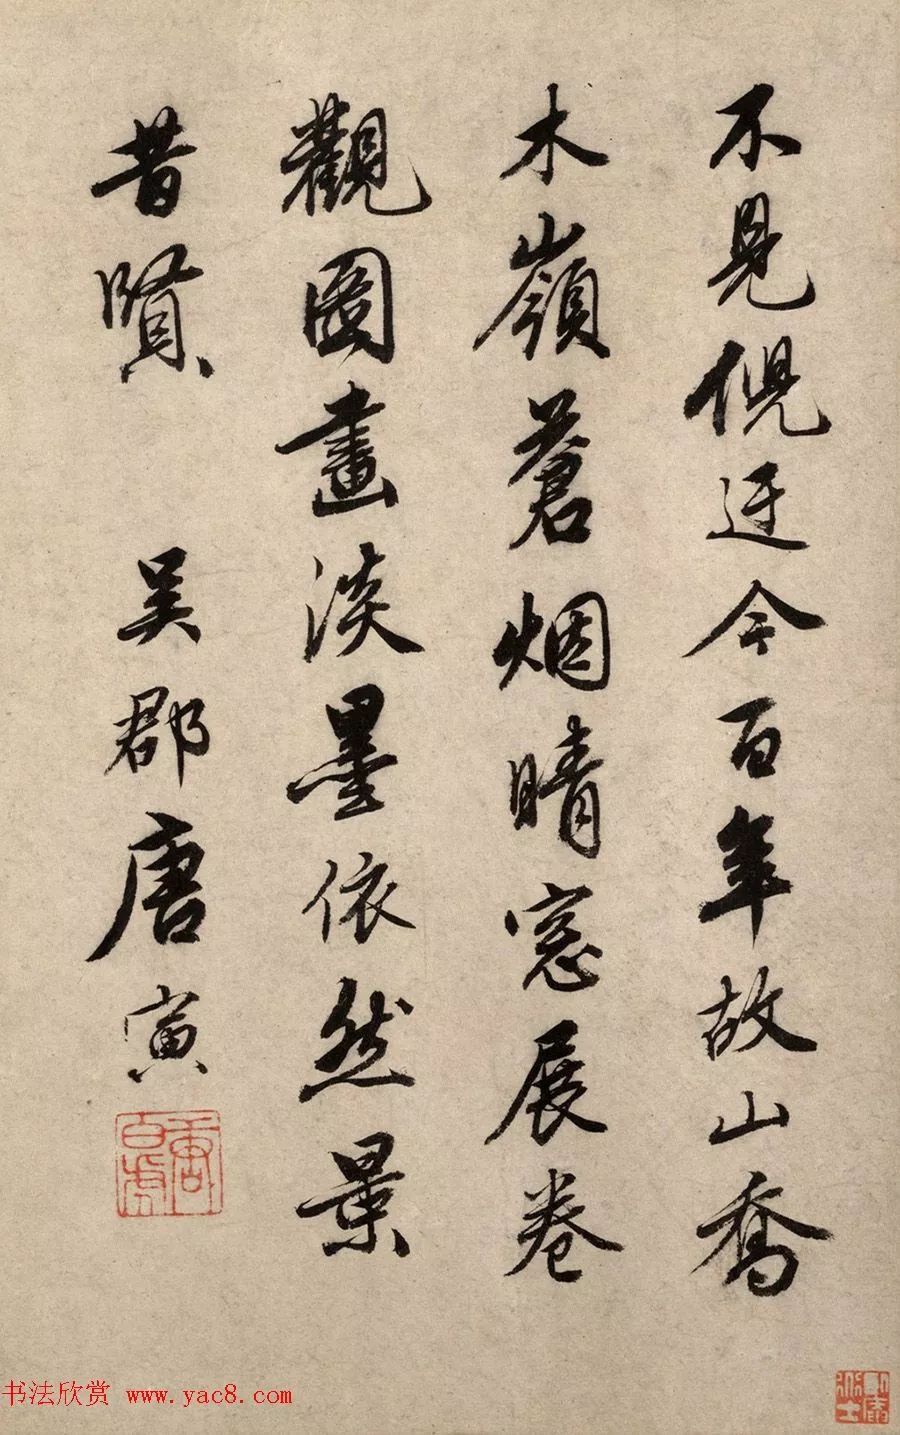 不見倪迂今百年故山喬
木嶺蒼烟晴窓展卷
觀圖畫淡墨依然景
昔賢
吴郡唐寅
书法欣赏 www.yac8.com